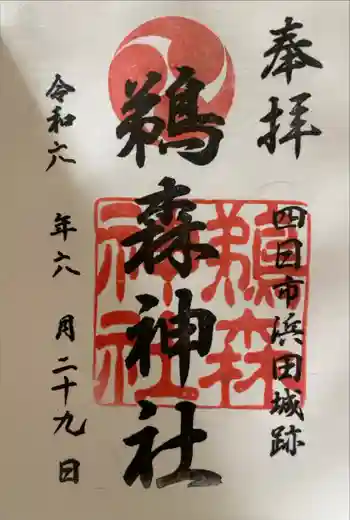 奉拝
四日市浜田城跡
鵜森神社
鵜森
神社
令和六年六月二十九日